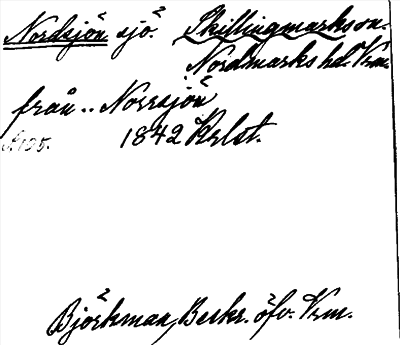 Nordsjön sjö. Skillingmarks sn.
Nordmarks hd. Vrm.
från .. Norrsjön
S. 135. 1842 Krlst.
Björkman, Beskr. öfv. Vrm.